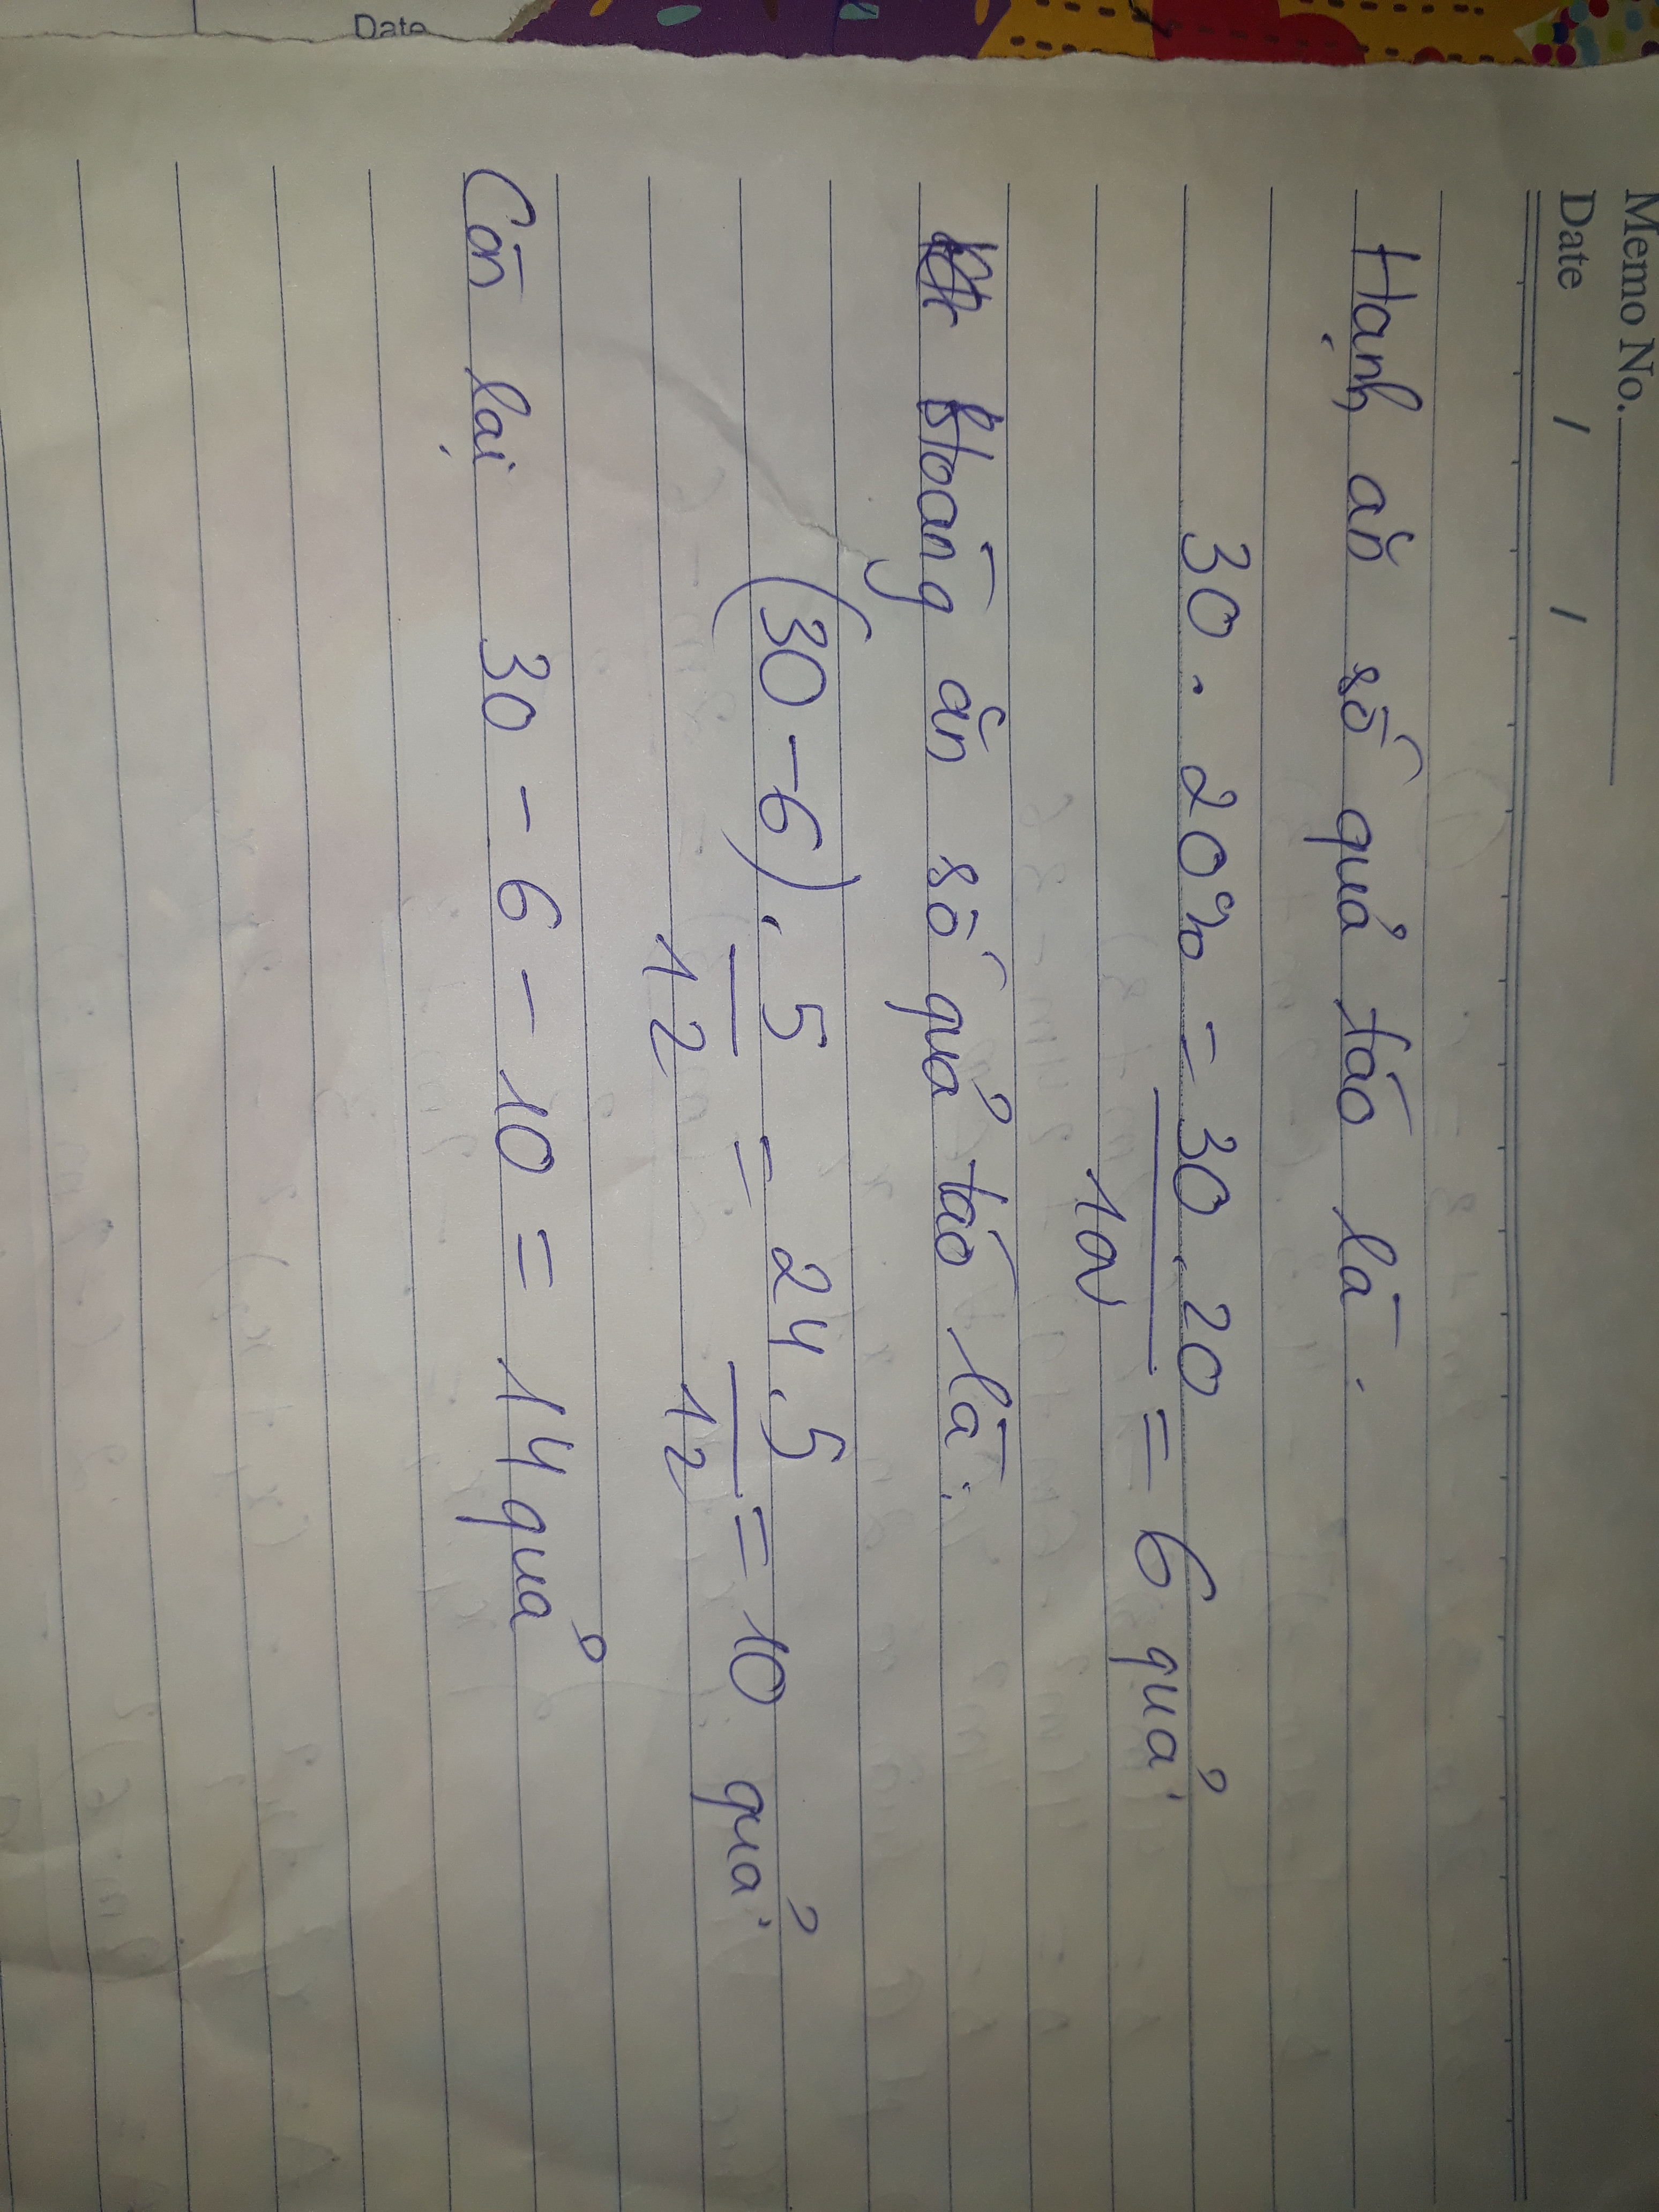 Memo No.
Date / /
Hạnh ăn số quả táo là:
30 . 20% = 30 . 20 / 100 = 6 quả
Hoàng ăn số quả táo là:
(30 - 6) . 5/12 = 24 . 5 / 12 = 10 quả
Còn lại 30 - 6 - 10 = 14 quả
Date